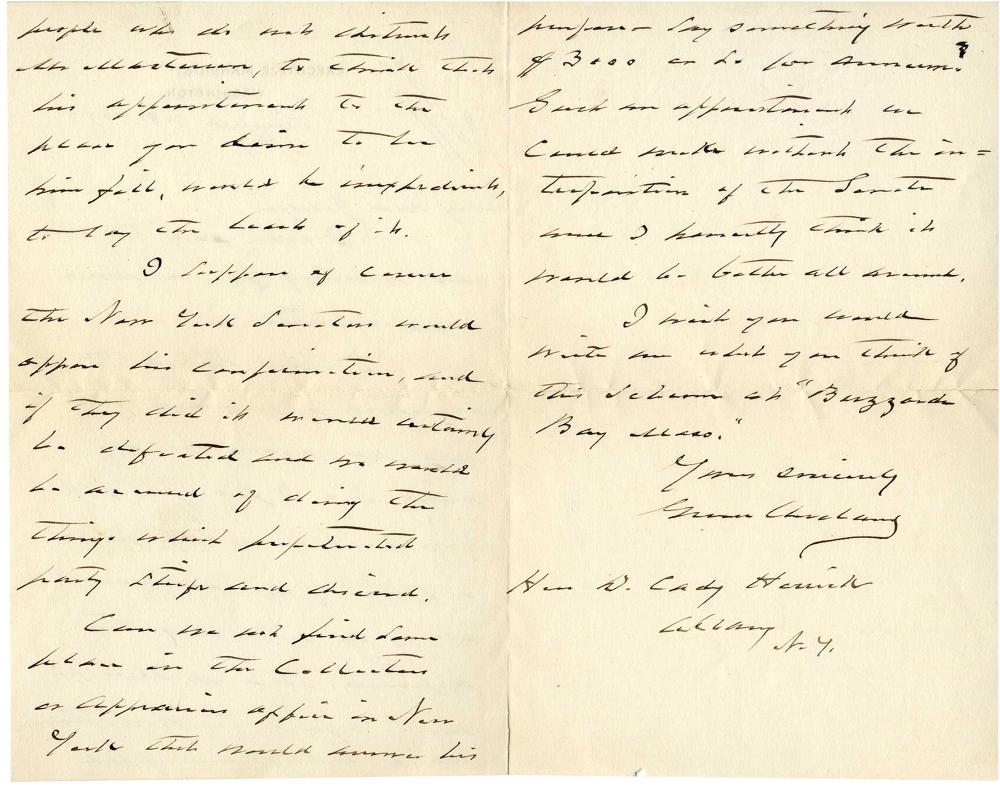 people who do not distrust
Mr Masterson, to think that
his appointment to the
place you desire to have
him fill, would be inexpedient,
to say the least of it.
I suppose of course
the New York Senators would
oppose his confirmation, and
if they did it would certainly
be defeated and we would
be accused of doing the
things which perpetuated
party strife and discord.
Can we not find some
place in the Collectors
or Appraisers office in New
York that would answer his
purpose — say something worth
$3000 or so per annum?
Such an appointment we
could make without the in=
terposition of the Senate
and I honestly think it
would be better all around.
I wish you would
write me what you think of
this scheme at "Buzzards
Bay Mass."
Yours sincerely
Grover Cleveland
Hon D. Cady Herrick
Albany
N.Y.